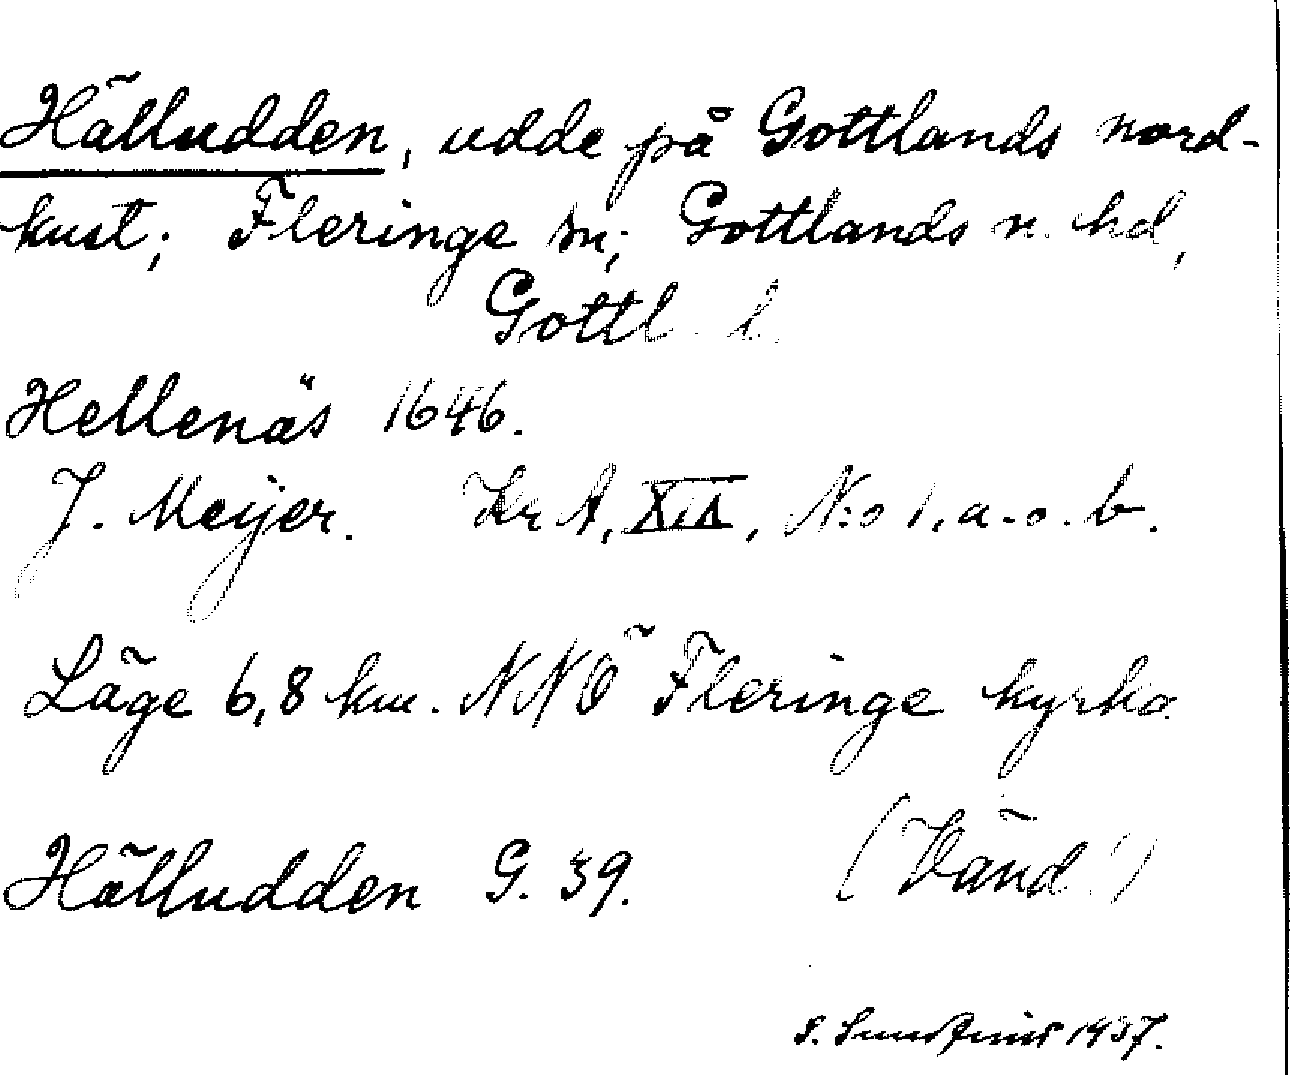 Hälludden, udde på Gottlands nord-
kust; Fleringe sn; Gottlands n. hd,
Gottl. l.
Hellenäs 1646.
J. Meijer. Kr A, XIX, N:o 1. a. o. b.
Läge 6,8 km. NNÖ Fleringe kyrka
Hälludden G. 39. (Vänd!)
1937.